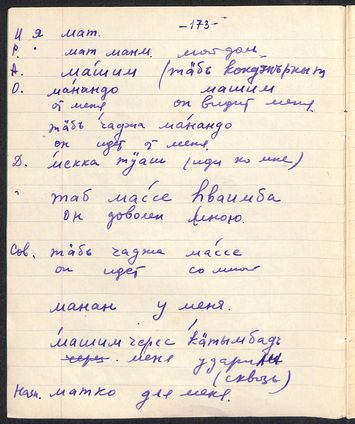 -173-
И я мат.
Р. " мат манм. мой дом
А. ма́шим (тӓбъ
О. ма́нандо машим
от меня он видит меня.
тӓбъ чаджа ма́нандо
он идет от меня
Д. ме́кка тӱаш (иди ко мне)
" таб ма́ссе һваимба
он доволен мною.
Сов. тӓбъ чаджа ма́ссе
он идет со мной
манан у меня.
ма́шим черес ка́тымбадъ
через меня ударили
(сквозь)
Назн. матко для меня.